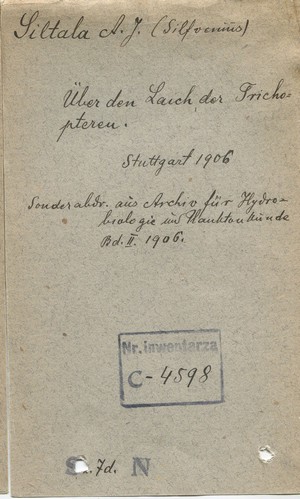 Siltala A. J. (Silfvenius)
Über den Laich der Tricho-
pteren.
Stuttgart 1906
Sonderabdr. aus Archiv für Hydro-
biologie und Planktonkunde
Bd. II. 1906.
Nr. inwentarza
C-4598
7d. N